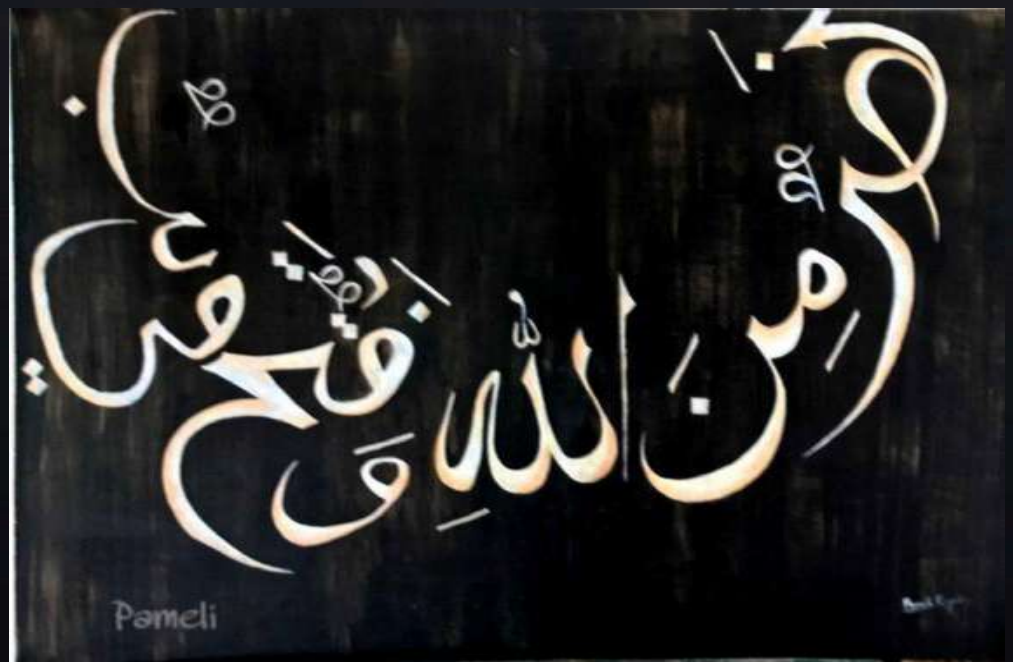 نَصْرٌ مِّنَ اللَّهِ وَفَتْحٌ قَرِيبٌ
Pameli